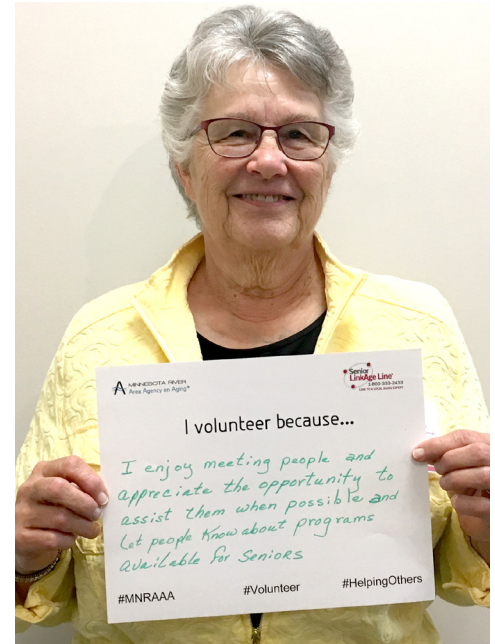 MINNESOTA RIVER
Area Agency on Aging®
Senior
LinkAge Line®
1-800-333-2433
I volunteer because...
I enjoy meeting people and
appreciate the opportunity to
assist them when possible and
let people know about programs
available for Seniors
#MNRAAA #Volunteer #HelpingOthers